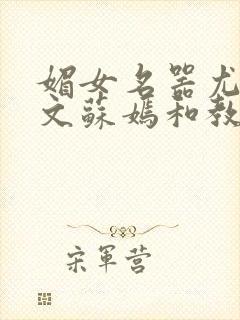 媚女名器尤
文蘇媽和教
宋軍营